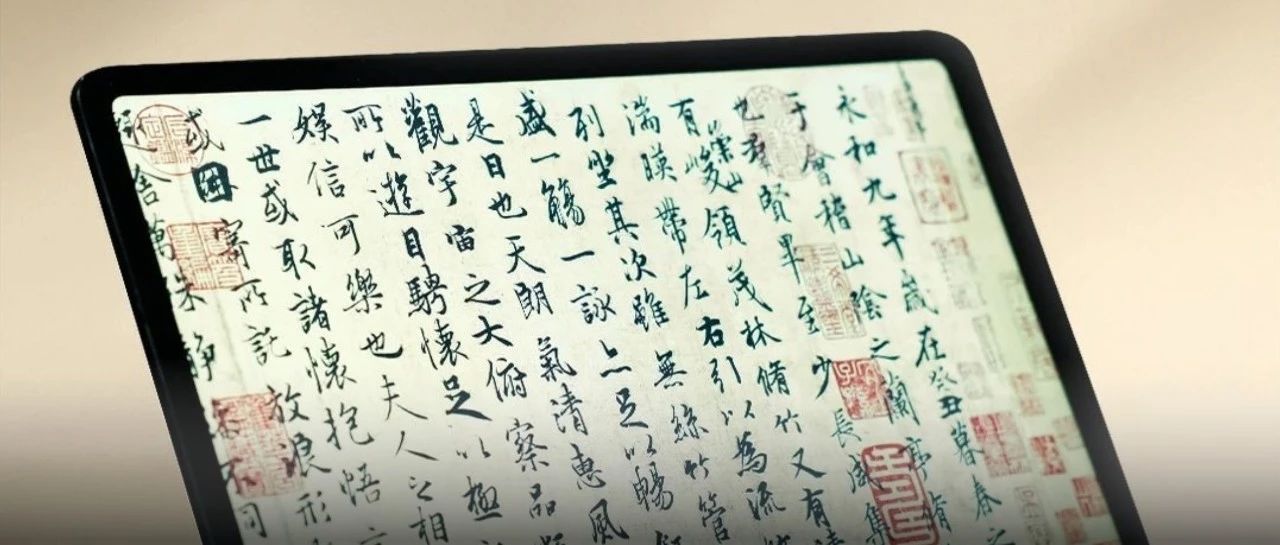 永和九年歲在癸丑暮春之
于會稽山陰之蘭亭脩
也羣賢畢至少長咸集
有崇山峻領茂林脩竹又有清
湍暎帶左右引以為流
列坐其次雖無絲竹管
盛一觴一詠亦足以暢
是日也天朗氣清惠風
觀宇宙之大俯察品
所以遊目騁懷足以極
娛信可樂也夫人之相
一世或取諸懷抱悟
或因寄所託放浪形
舍萬殊靜躁不同